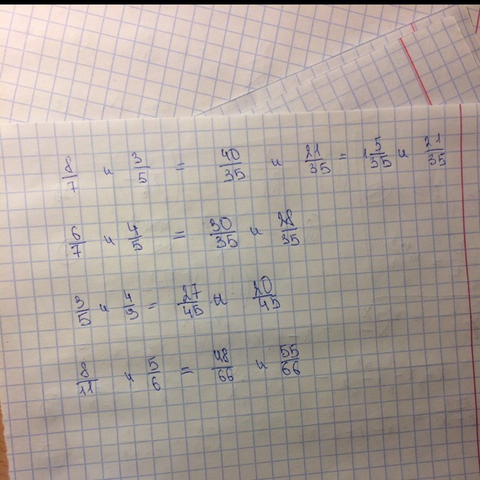 8/7 и 3/5 = 40/35 и 21/35 = 1 5/35 и 21/35
6/7 и 4/5 = 30/35 и 28/35
3/5 и 4/9 = 27/45 и 20/45
8/11 и 5/6 = 48/66 и 55/66